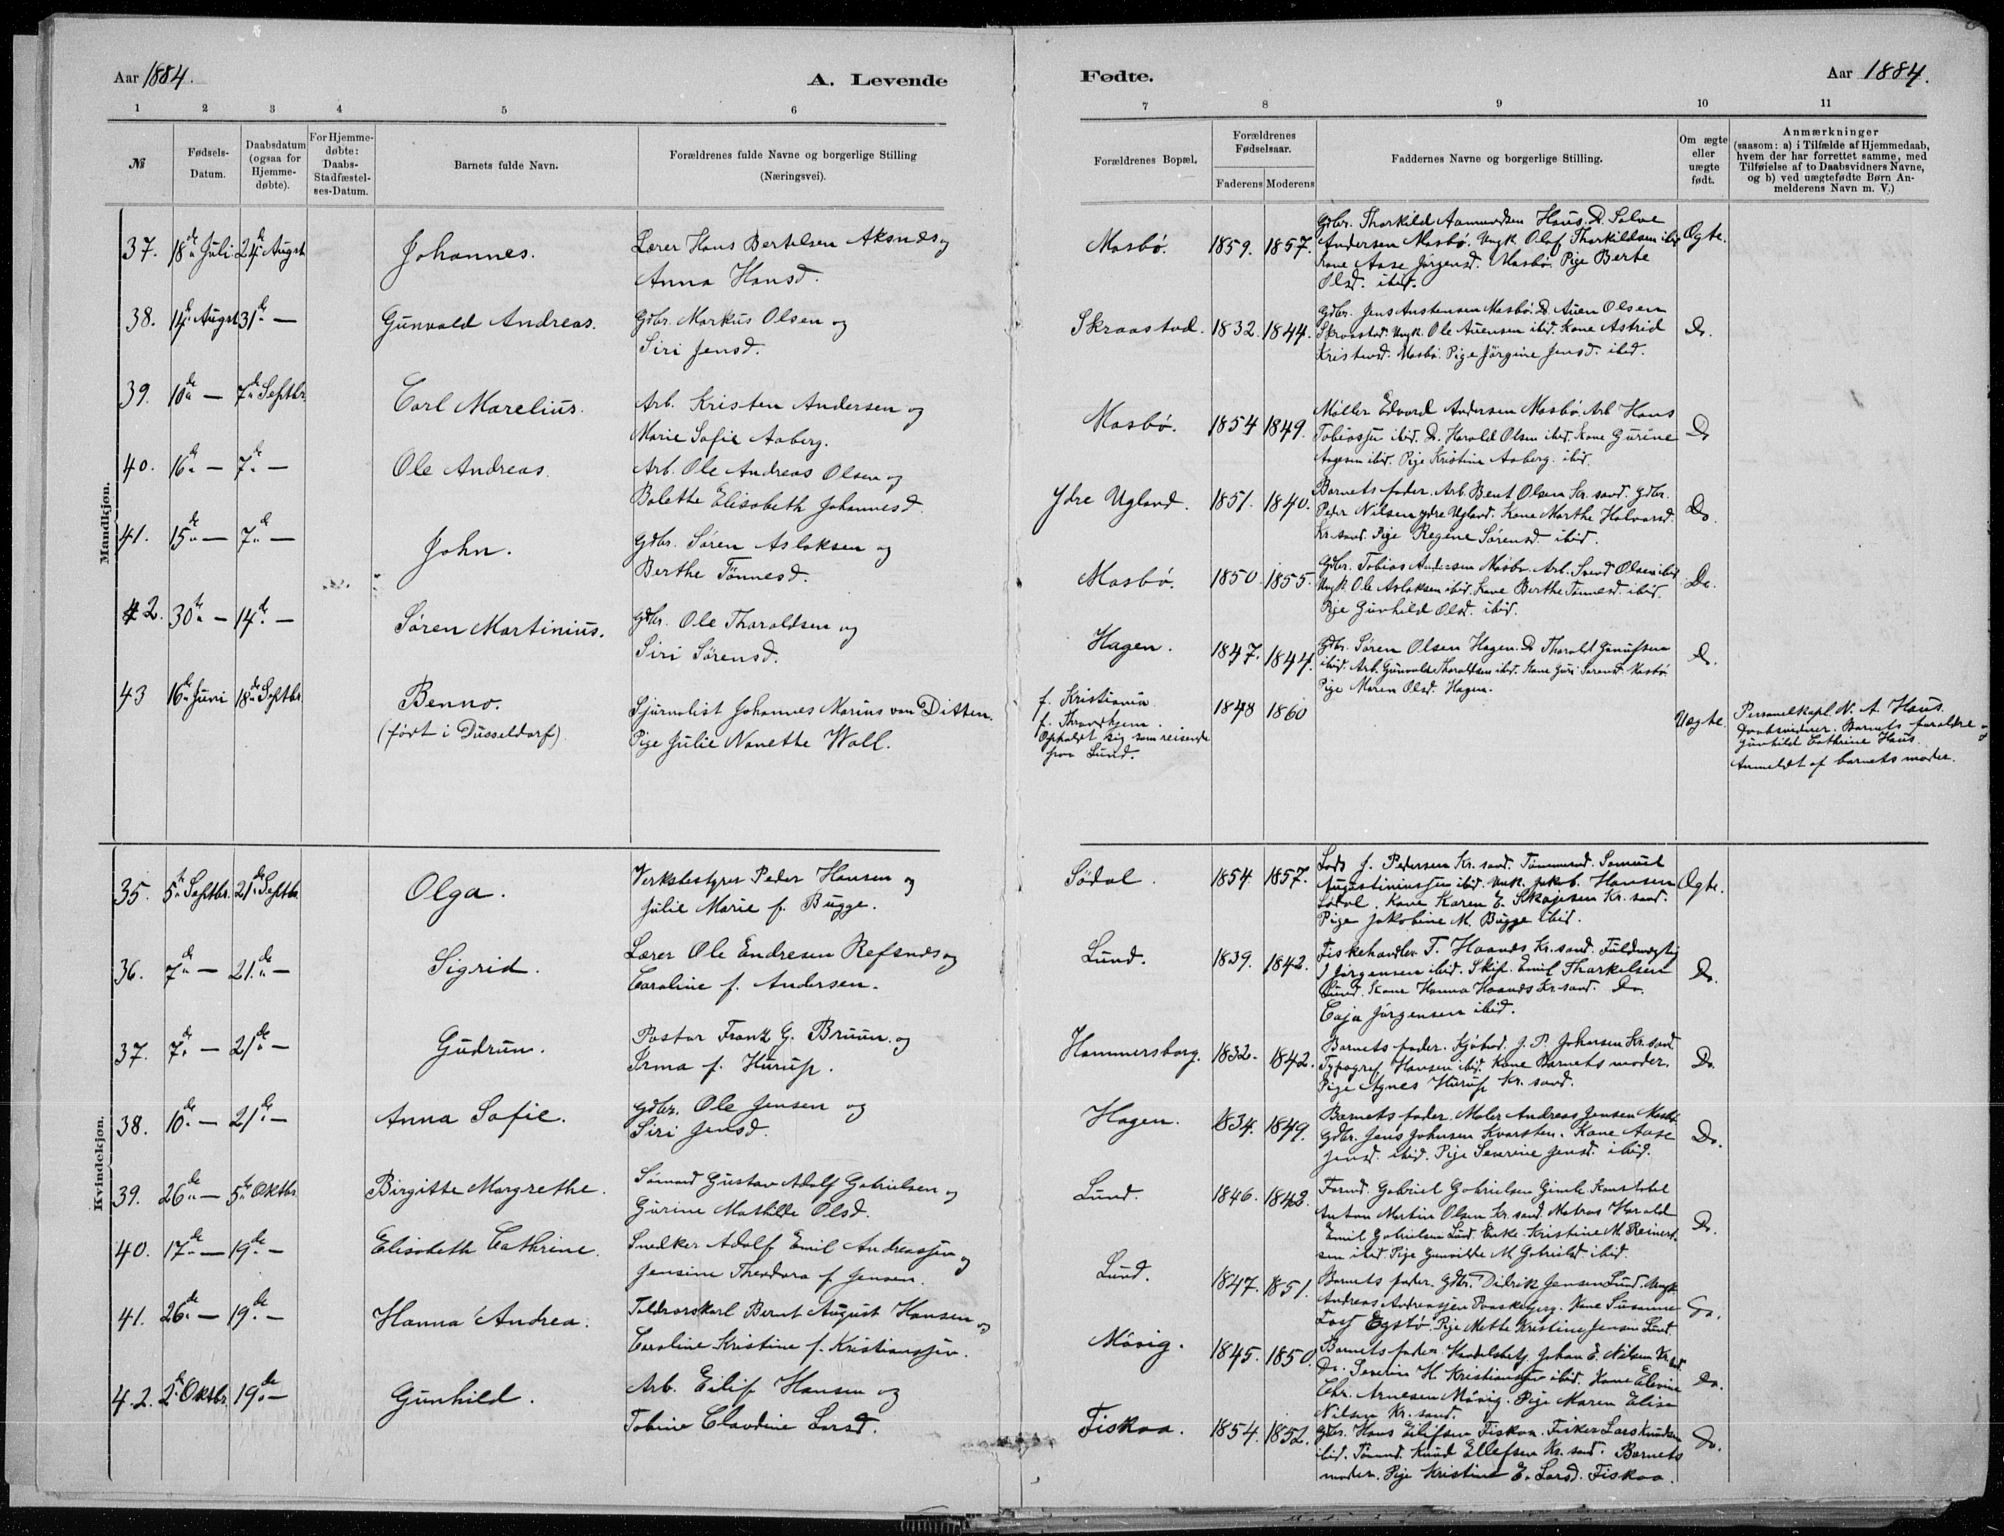 Aar 1884.
A. Levende
1 2 3 4 5 6
№
Fødsels-
Datum.
Daabsdatum
(ogsaa for
Hjemme-
døbte).
For Hjemme-
døbte:
Daabs-
Stadfæstel-
ses-Datum.
Barnets fulde Navn.
Forældrenes fulde Navne og borgerlige Stilling
(Næringsvei).
Mandkjøn.
37. 18de Juli 24de Augst Johannes. Lærer Hans Bertelsen Aksnes og
Anna Hansd.
38. 14de Augst 31de — Gunvald Andreas. Gdbr. Markus Olsen og
Siri Jensd.
39. 10de — 7de Septbr. Carl Marelius. Arb. Kristen Andersen og
Marie Sofie Aaberg.
40. 16de — 7de — Ole Andreas. Arb. Ole Andreas Olsen og
Bolette Elisabeth Johannesd.
41. 15de — 7de — John. Gdbr. Søren Aslaksen og
Berthe Tønnesd.
42. 30te — 14de — Søren Martinius. Gdbr. Ole Tharaldsen og
Siri Sørensd.
43 16de Juni 18de Septbr. Benno. Sjurnalist Johannes Marius van Ditten.
(født i Düsseldorf). Pige Julie Nanette Wall.
Kvindekjøn.
35. 5te Septbr. 21de Septbr. Olga. Verksbestyrer Peder Hansen og
Julie Marie f. Bugge.
36. 7de — 21de — Sigrid. Lærer Ole Endresen Refsnes og
Caroline f. Andersen.
37. 7de — 21de — Gudrun. Pastor Frantz G. Bruun og
Irma f. Hurup.
38. 10de — 21de — Anna Sofie. Gdbr. Ole Jensen og
Siri Jensd.
39. 26de — 5te Oktbr. Birgitte Margrethe. Sømand Gustav Adolf Gabrielsen og
Gurine Mathilde Olsd.
40. 17de — 19de — Elisabeth Cathrine. Snedker Adolf Emil Andreassen og
Jensine Theodora f. Jensen.
41. 26de — 19de — Hanna Andrea. Toldrorskarl Bernt August Hansen og
Caroline Kristine f. Kristianssen.
42. 2de Oktbr. 19de — Gunhild. Arb. Eilif Hansen og
Tobine Claudine Larsd.
Fødte.
Aar 1884.
7 8 9 10 11
Forældrenes Bopæl.
Forældrenes
Fødselsaar.
Faderens Moderens
Faddernes Navne og borgerlige Stilling.
Om ægte
eller
uægte
født.
Anmærkninger
(saasom: a) i Tilfælde af Hjemmedaab,
hvem der har forrettet samme, med
Tilføielse af to Daabsvidners Navne,
og b) ved uægtefødte Børn An-
melderens Navn m. V.)
Mosbø. 1859. 1857. Gdbr. Tharkild Aamundsen Haus. Do. Salve
Andersen Mosbø. Ungk. Olaf Tharkildsen ibid.
Kone Aase Jørgensd. Mosbø. Pige Berte
Olsd. ibid. Ægte.
Skraastad. 1832. 1844. Gdbr. Jens Austensen Mosbø. Do. Auen Olsen
Skraastad. Ungk. Ole Auensen ibid. Kone Astrid
Kristensd. Mosbø. Pige Jørgine Jensd. ibid. Do.
Mosbø. 1854 1849. Møller Edvard Andersen Mosbø. Arb. Hans
Tobiassen ibid. Do. Harald Olsen ibid. Kone Gurine
Aagesen ibid. Pige Kristine Aaberg. ibid. Do
Ydre Ugland. 1851. 1840. Barnets fader. Arb. Bent Olsen Kr. sand. Gdbr.
Peder Nilsen ydre Ugland. Kone Marthe Halvorsd.
Kr. sand. Pige Regine Sørensd. ibid. Do.
Mosbø. 1850. 1855. Gdbr. Tobias Andersen Mosbø. Arb. Svend Olsen ibid
Ungk. Ole Aslaksen ibid. Kone Berthe Tønnesd. ibid.
Pige Gunhild Olsd. ibid. Do.
Hagen. 1847. 1844. Gdbr. Søren Olsen Hagen. Do Tharald Gunufsen
ibid. Arb. Gunvald Tharaldsen ibid. Kone Guri Sørensd. Mosbø
Pige Maren Olsd. Hagen. Do.
f. Kristiania 1848 1860 Uægte.
f. Throndhjem.
Opholdt sig som reisende
paa Lund.
Personelkapl. N. A. Haus.
Daabsvidner. Barnets forældre og
Gunhild Cathrine Haus.
Anmeldt af barnets moder.
Sødal. 1854. 1857. Lods J. Pedersen Kr. sand. Tømmermd. Samuel
Augustiniussen ibid. Ungk. Jakob Hansen
Sødal. Kone Karen E. Skajesen Kr. sand.
Pige Jakobine M. Bugge ibid. Ægte.
Lund. 1839. 1842. Fiskehandler T. Haanes Kr. sand. Fuldmægtig
J Jørgensen ibid. Skip. Emil Tharkelsen
Lund. Kone Hanna Haanes Kr. sand. Do.
Caja Jørgensen ibid. Do.
Hammersborg. 1832. 1842. Barnets fader. Kjøbmd. J. P. Johansen Kr. sand
Typograf Hansen ibid. Kone Barnets moder.
Pige Agnes Hurup Kr. sand. Do.
Hagen. 1834. 1849. Barnets fader. Maler Andreas Jensen Mosbø.
Gdbr. Jens Johnsen Kvarsten. Kone Aase
Jensd. ibid. Pige Severine Jensd. ibid. Do.
Lund. 1846. 1842. Formd. Gabriel Gabrielsen Gimle Konstabel
Anton Martin Olsen Kr. sand. Matros Harald
Emil Gabrielsen Lund. Enke. Kristine M. Reinert-
sen ibid. Pige Gunvilde M. Gabrielsd. ibid. Do.
Lund. 1847. 1851. Barnets fader. Gdbr. Didrik Jensen Lund. Ungk.
Andreas Andreassen Paaskebjerg. Kone Susanne
Egsbø. Pige Mette Kristine Jensen Lund. Do.
Møvig. 1845. 1850. Barnets fader. Handelsbetj. Johan E. Nilsen Kr. sand
Do. Severin H. Kristiansen ibid. Kone Elevine
Chr. Arnesen Møvig. Pige Maren Elise
Nilsen Kr. sand. Do.
Fiskaa. 1854. 1852. Gdbr. Hans Eilifsen Fiskaa. Fisker Lars Knudsen
ibid. Tømmd. Knud Ellefsen Kr. sand. Barnets
moder. Pige Kristine E. Larsd. Fiskaa. Do.